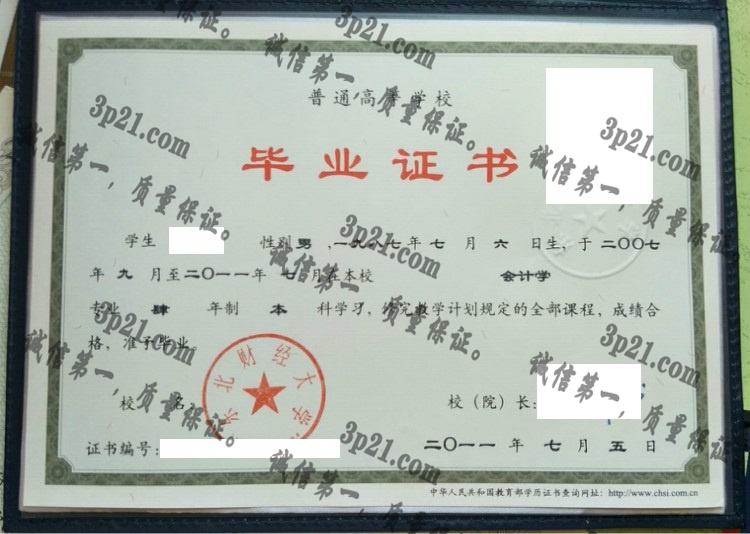 普通高等学校
毕业证书
学生 性别 男，一九八七年 七 月 六 日生，于 二〇〇七
年 九 月至二〇一一年 七 月在本校 会计学
专业 肆 年制 本 科学习，修完教学计划规定的全部课程，成绩合
格，准予毕业。
校 名：
东北财经大学
校（院）长：
证书编号：
二〇一一 年 七 月 五 日
中华人民共和国教育部学历证书查询网址：http://www.chsi.com.cn
3p21.com
诚信第一，质量保证。
3p21.com
诚信第一，质量保证。
3p21.com
诚信第一，质量保证。
3p21.com
诚信第一，质量保证。
3p21.com
诚信第一，质量保证。
3p21.com
诚信第一，质量保证。
3p21.com
诚信第一，质量保证。